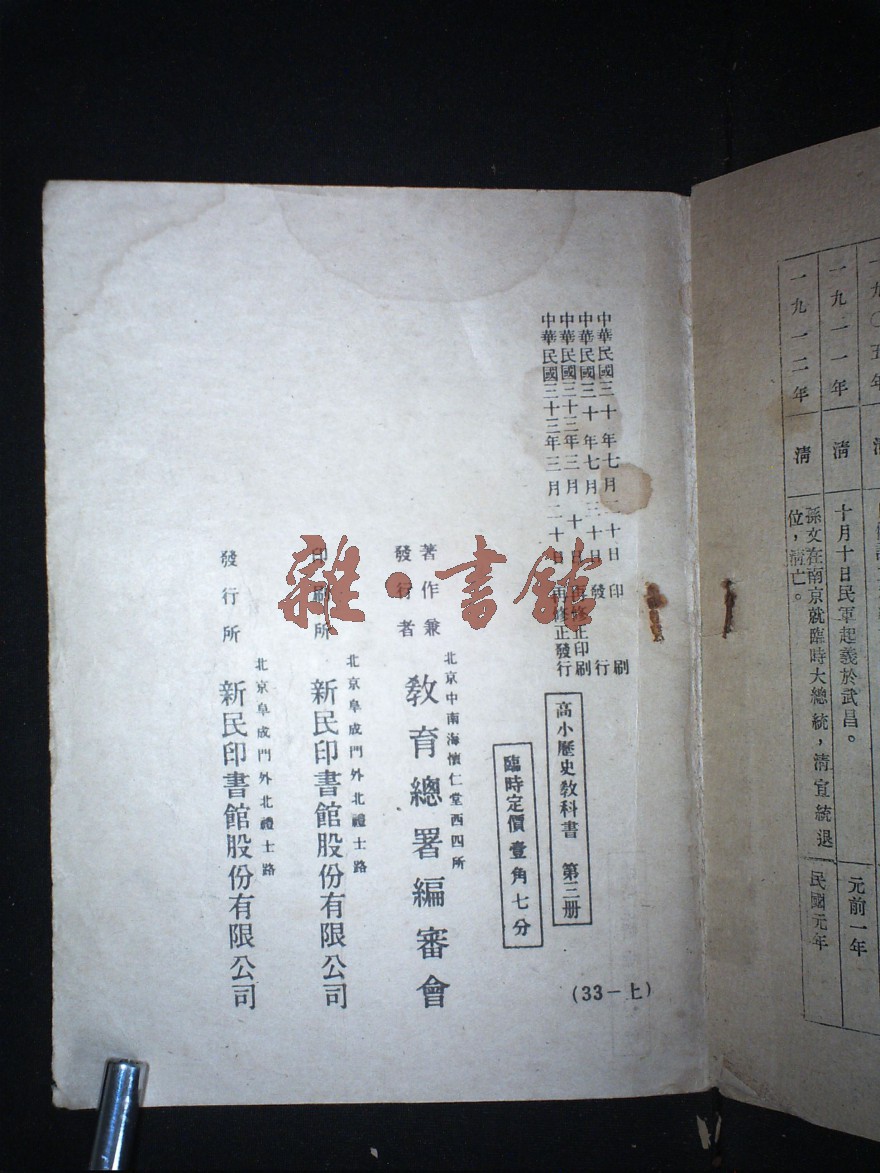 一九〇五年
一九一一年
清
十月十日民軍起義於武昌。
元前一年
一九一二年
清
孫文在南京就臨時大總統,清宣統退
位,清亡。
民國元年
中華民國三十年七月二十日印刷
中華民國三十年七月三十日發行
中華民國三十三年三月十日再修正印刷
中華民國三十三年三月二十日再修正發行
高小歷史教科書 第三册
臨時定價壹角七分
(33-上)
著作兼
發行者
北京中南海懷仁堂西四所
教育總署編審會
印刷所
北京阜成門外北禮士路
新民印書館股份有限公司
發行所
北京阜成門外北禮士路
新民印書館股份有限公司
雜·書館